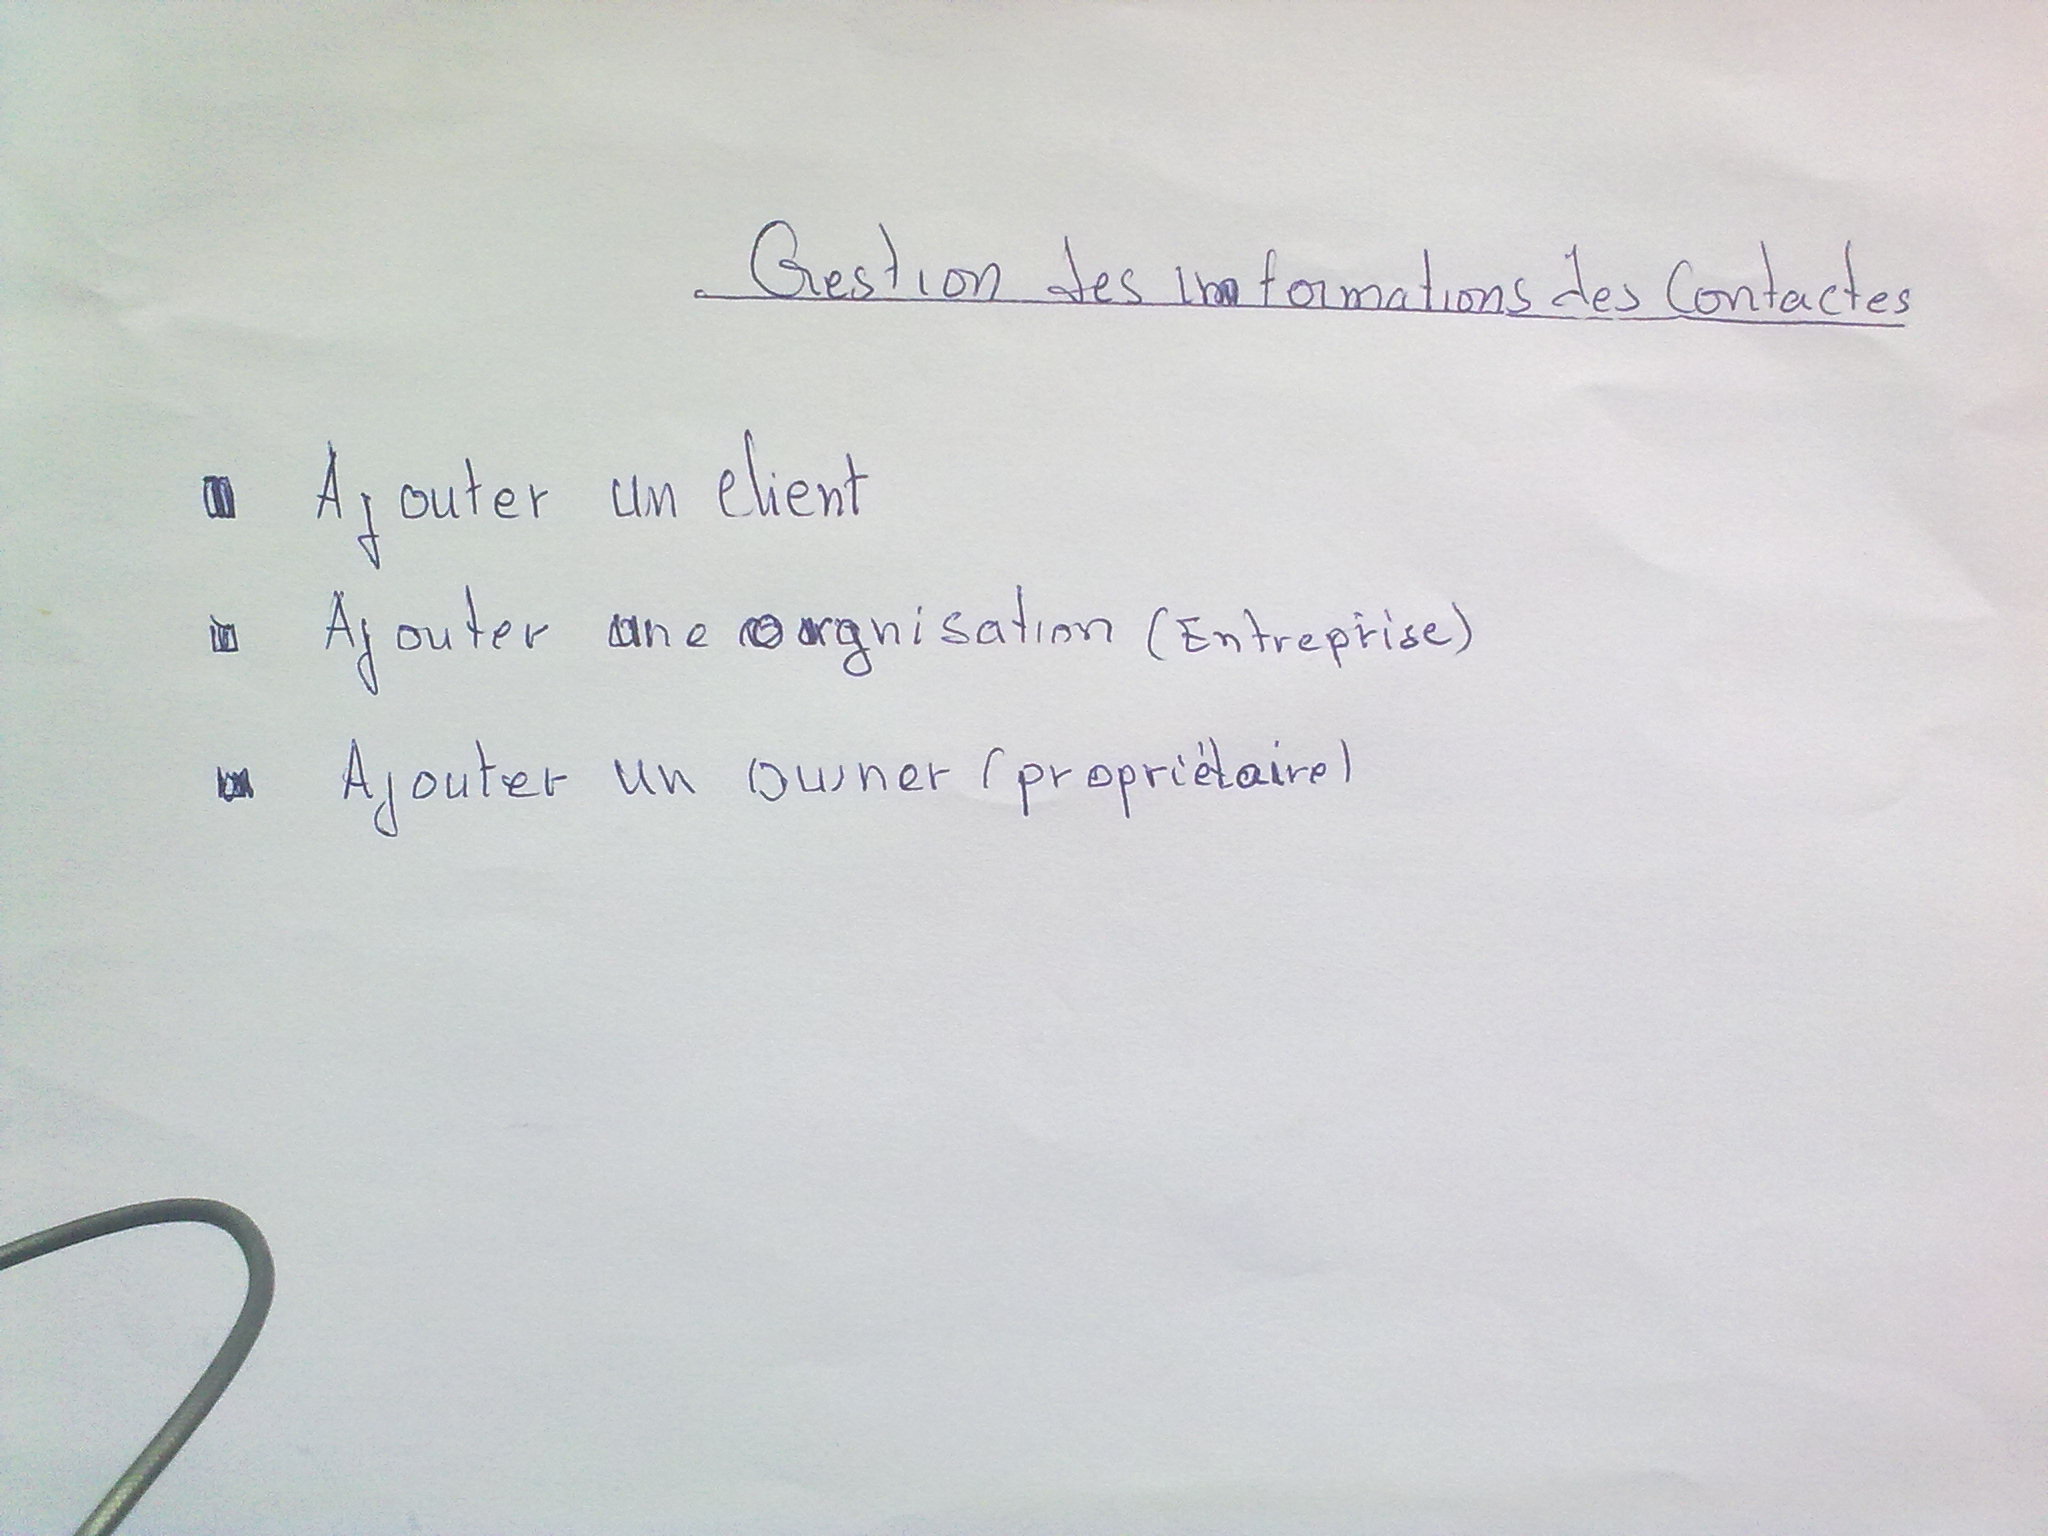 Gestion des informations des Contactes
Ajouter un client
Ajouter une orgnisation (Entreprise)
Ajouter un owner (propriétaire)